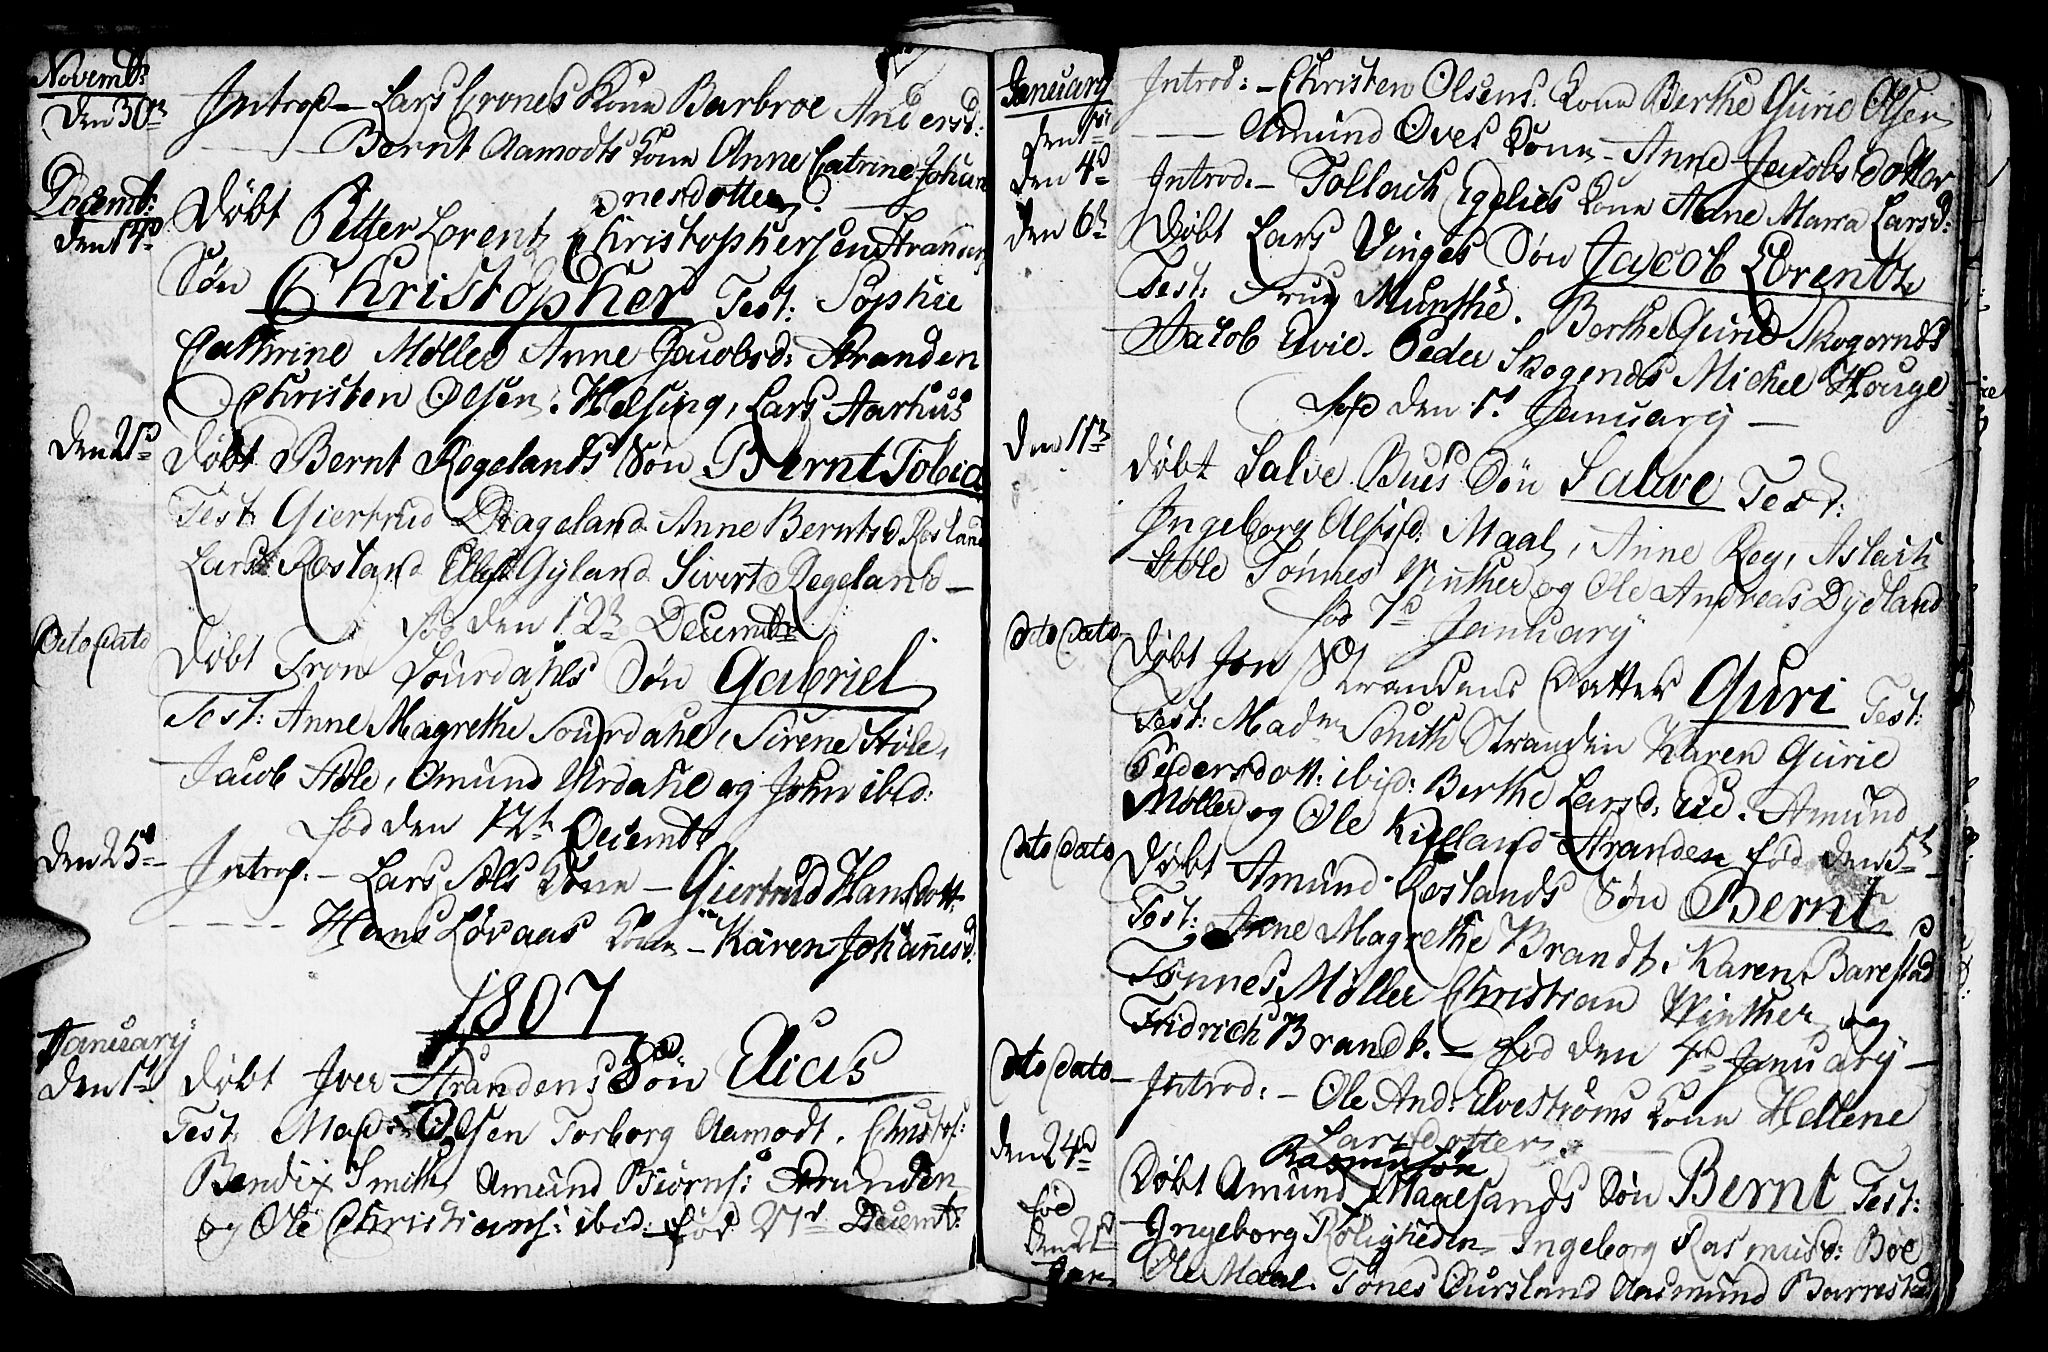 Novembr
Den 30te Introd – Lars Crones Kone Barbroe Andersd:
Bernt Aamodts Kone Anne Catrine Johan
nesdotter.
Decembr:
den 14d Døbt Petter Lorentz Christophersen Strands
Søn Christopher Test: Sophie
Cathrine Møller Anne Jacobsd: Stranden
Christen Olsen: Helsing, Lars Aarhus
Den 21d Døbt Bernt Regelands Søn Bernt Tobias
Test Giertrud Drageland Anne Berntsd. Rosland
Lars Rosland Elles Gyland Sivert Regeland –
fød den 12te Decembr
Dito Dato Døbt Tron Sourdahls Søn Gabriel
Test: Anne Magrethe Sourdahl, Sirene Støle,
Jacob Støle, Omund Urdahl og John ibid:
fød den 12te Decembr
den 25d Introd: – Lars Sæls Kone – Giertrud Hansdott:
Hans Løvaas Kone – Karen Johannesd:
1807
January
den 1st Døbt Iver Strandens Søn Elias
Test: Mad: Olsen Torborg Aamodt. Christof:
Bendix Smith, Amund Biørns: Stranden
og Ole Christians: ibid: fød 27d Decembr:
January
den 1st Introd: – Christen Olsens Kone Berthe Gurie Olsen
Amund Oves Kone – Anne Jacobsdotter
Den 4d Introd. – Tollach Egelies Kone Anne Maria Larsd:
den 6te Døbt Lars Vinges Søn Jacob Lorentz
Test: Frue Munthe. Berthe Gurie Skogends
Jacob Evie. Peder Skogends Michel Houge
fød den 1st January –
Den 11te Døbt Salve Bues Søn Salve Test:
Ingeborg Maal, Anne Rey, Aslach
Støle Tønnes Vinther og Ole Andreas Dydland
fød 7d January
Dito Dato Døbt Jon Strandens Datter Guri Test:
Test: Madm Smith Stranden Karen Gurie
Pedersdott: ibid: Berthe Larsd: Amund
Møller og Ole Kielland Stranden fød den 5te
Dito Dato Døbt Amund Roslands Søn Bernt
Test: Anne Magrethe Brandt, Karen Barestad
Tønnes Møller Christian Winther og
Fridrich Brandt. – fød den 4d January –
Dito Dato – Introd: – Ole And: Elvestrøms Kone Hellene
Larsdotter. –
Rasmusøn
den 24d Døbt Amund Maalesands Søn Bernt Test:
fød Ingeborg Roligheden Ingeborg Rasmusd: Boe
den 21d Ole Maal. Tønes Aasmund Barrestad
Jan: